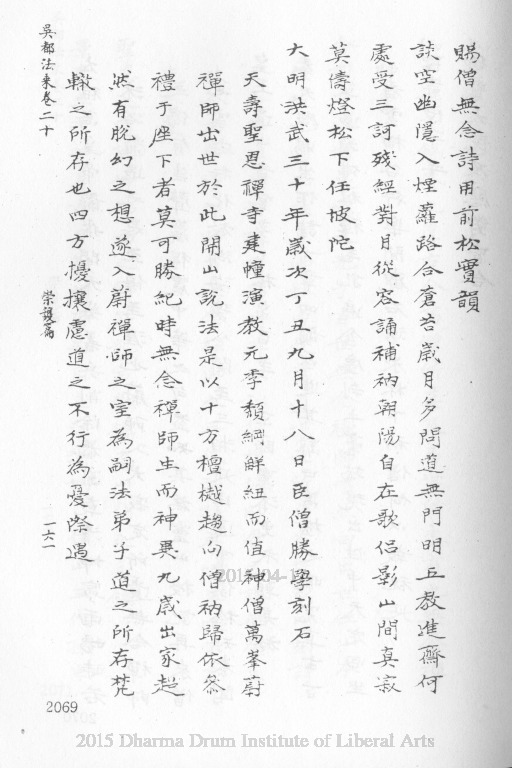 賜僧無念詩用前松實韻
談空幽隱入煙蘿路合蒼苔歲月多問道無門明五教進齋何
處受三訶殘經對月從容誦補衲朝陽自在歌侶影山間真寂
莫傳燈松下任坡陀
大明洪武三十年歲次丁丑九月十八日臣僧勝學刻石
天壽聖恩禪寺建幢演教元季頹綱解紐而值神僧萬峯蔚
禪師出世於此開山說法是以十方檀樾趨向僧衲歸依參
禮于座下者莫可勝紀時無念禪師生而神異九歲出家超
然有脫幻之想遂入蔚禪師之室為嗣法弟子道之所存梵
轍之所存也四方擾攘慮道之不行為憂際遇
吳都法乘卷二十
崇護篇
一六一
2069
2015 Dharma Drum Institute of Liberal Arts